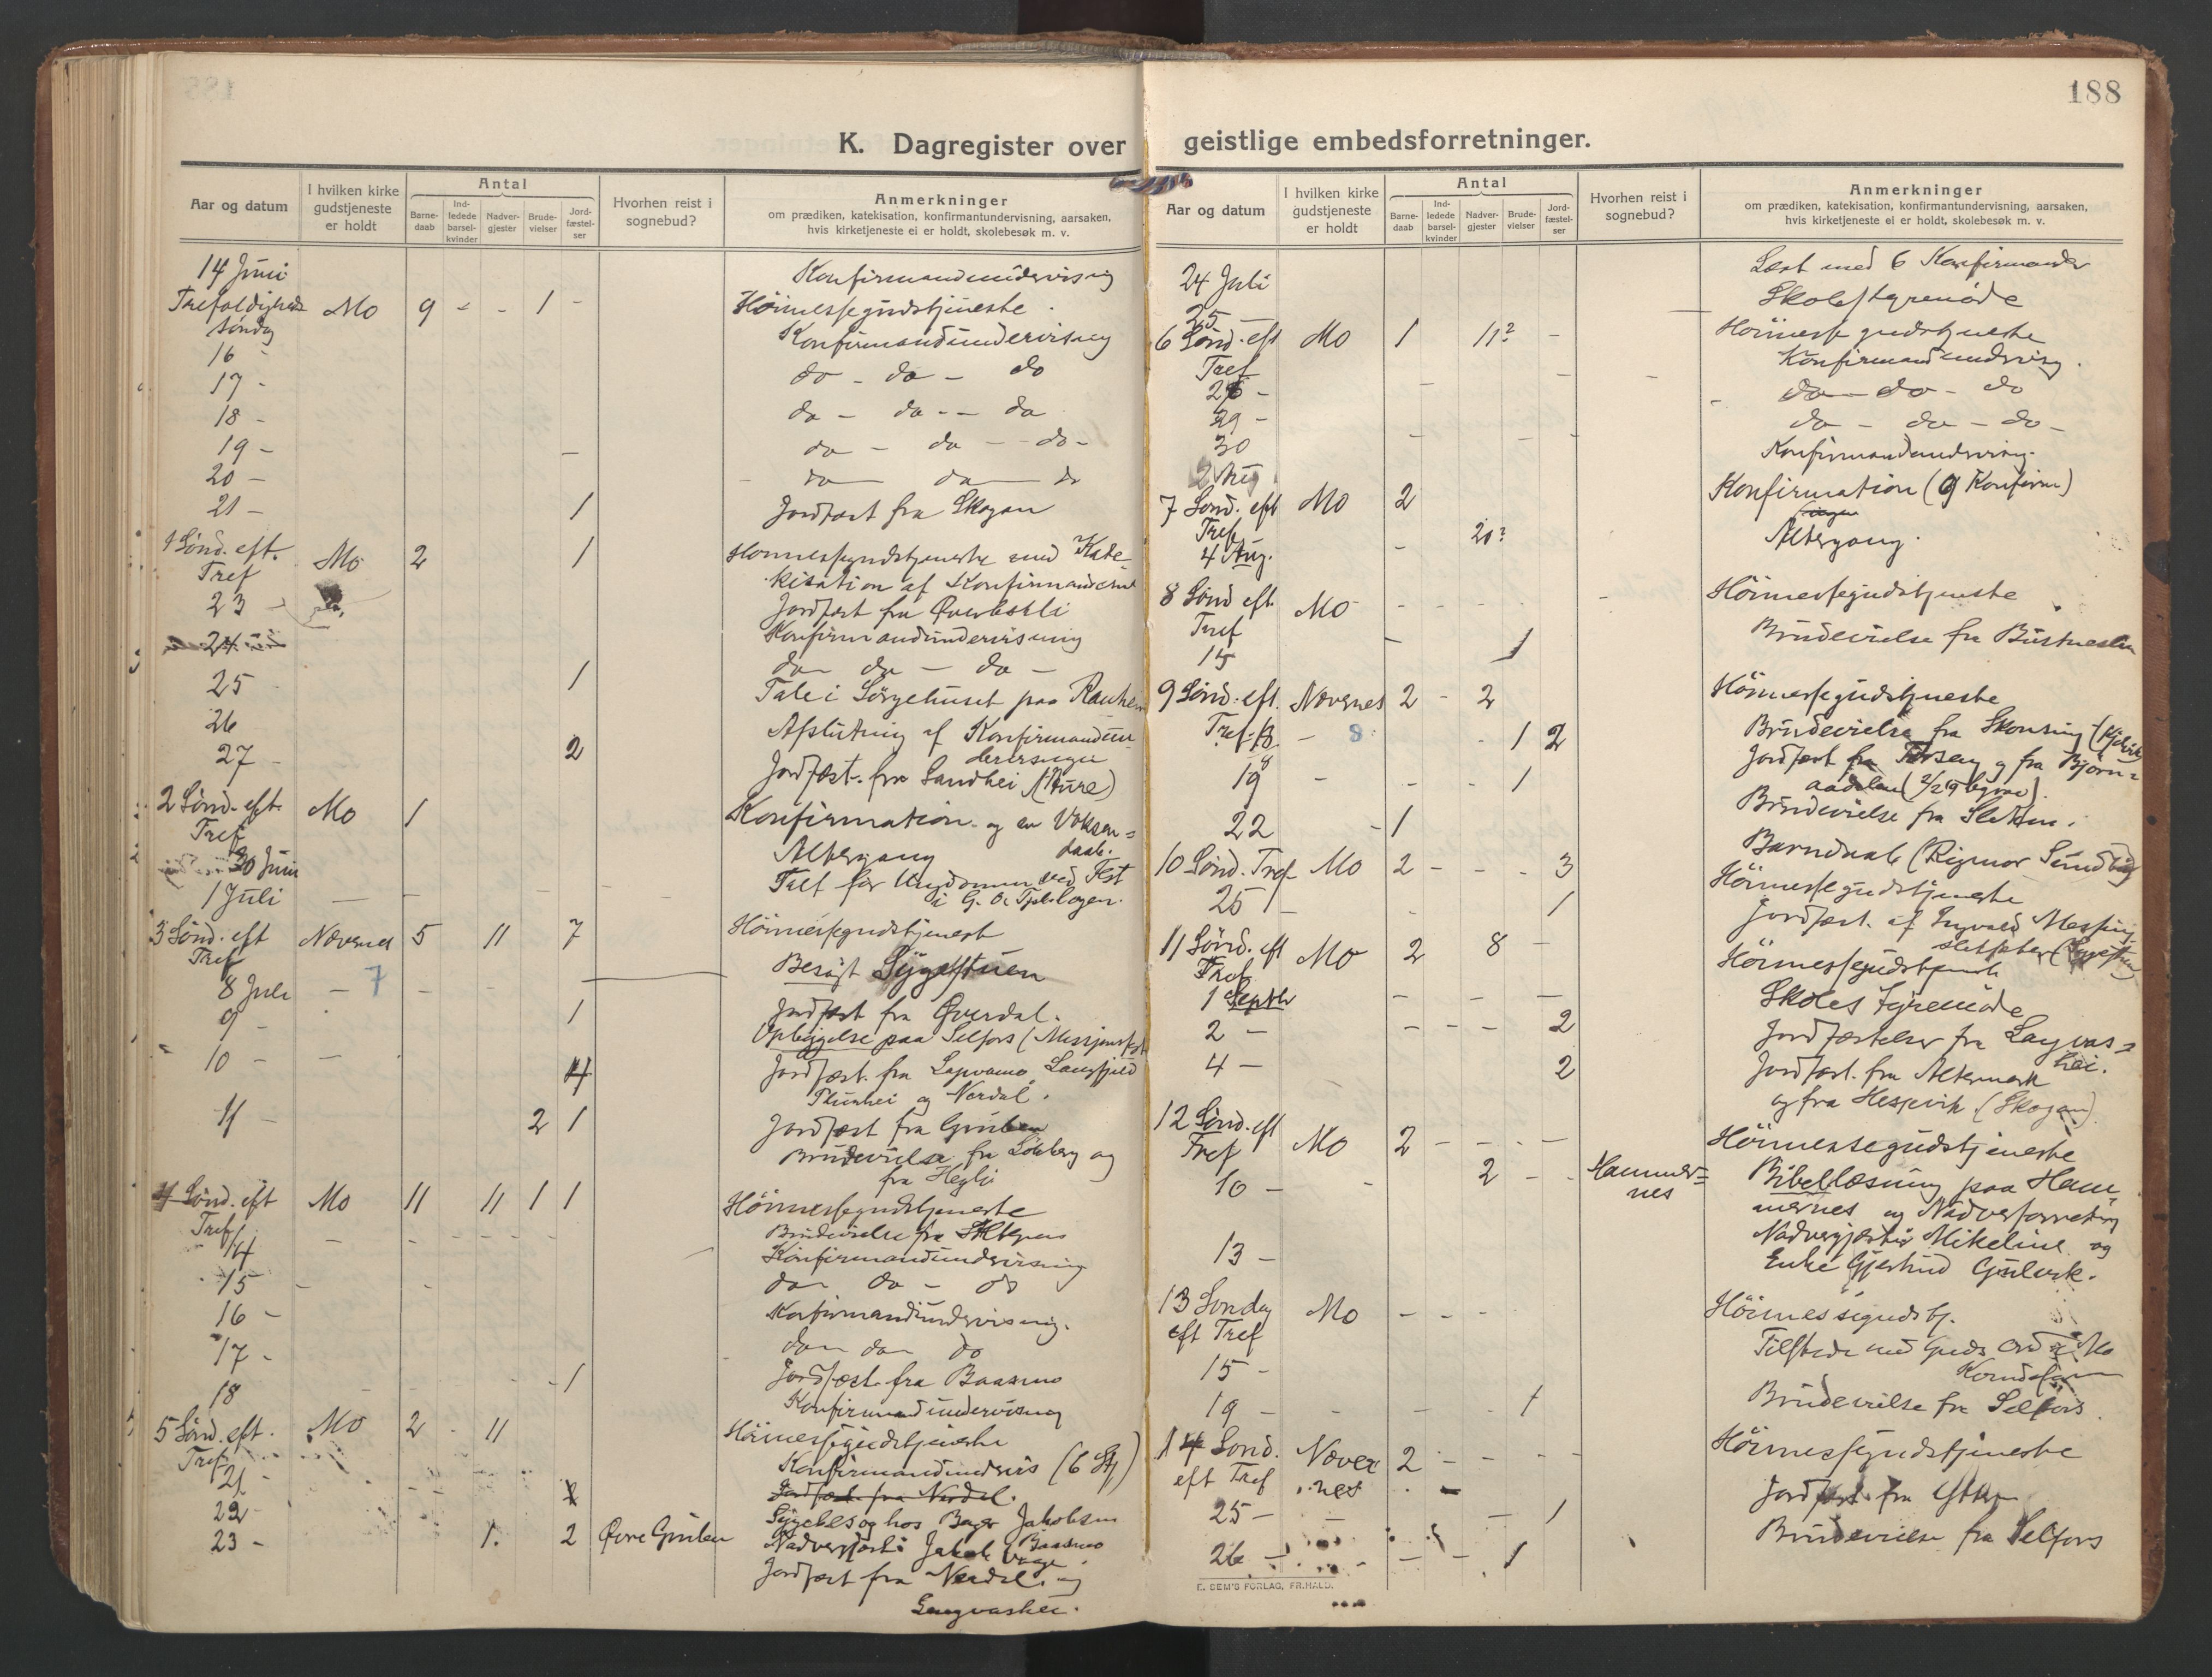 188
K. Dagregister over geistlige embedsforretninger.
Aar og datum
I hvilken kirke gudstjeneste er holdt
Antal
Barne-daab
Ind-ledede barsel-kvinder
Nadver-gjester
Brude-vielser
Jord-fæstel-ser
Hvorhen reist i sognebud?
Anmerkninger
om prædiken, katekisation, konfirmantundervisning, aarsaken,
hvis kirketjeneste ei er holdt, skolebesøk m. v.
14 Juni Konfirmandundervisnig
Trefoldigheds Mo 9 - - 1 - Höimessegudstjeneste
søndag
16 - Konfirmandundervisning
17 - do - do - do
18 - do - do - - do
19 - do - do - - do -
20 - do do do
21 - 1 Jordfæst fra Skogan
1 Sønd. eft. Mo 2 1 Höimessegudstjeneste med Kate-
Tref kisation af Konfirmanderne
23 - Jordfæst fra
24 Konfirmandundervisning
do do - do -
25 1 Tale i Sörgehuset paa
26 Afslutning af Konfirmandun-
dervisnigen
27 - 2 Jordfæst. fra Sandhei
2 Sønd. eft. Mo 1 Konfirmation og en Voksen-
Tref daab.
30 Juni Altergang
1 Juli Talt for Ungdommen ved Fest
i G. O. Tpllogen.
3 Sønd. eft Nævernes 5 11 7 Höimessegudstjenest
Tref
7
8 Juli - Besögt Sygestuen
9 - 1 Jordfæst fra Överdal.
Opbyggelse paa Selfors (Missjonsfest
10 - 4 Jordfæst. fra
og Nordal.
11 - 2 1 Jordfæst fra Gruben
Brudevielse fra og
fra Heglji
4 Sønd. eft Mo 11 11 1 1 Höimessegudstjeneste
Tref Brudevielse fra
14 Konfirmandundervisning
15 - do do - do
16 - Konfirmandundervisnig.
17 - do do do
18 1 Jordfæst. fra Baasmo
Konfirmandundervisning
5 Sønd. eft. Mo 2 - 11 Höimessegudstjeneste
Tref
21 - Konfirmandundervis (6 St)
22 - Jordfæst. fra Nerdal.
23 - 1. 2 Övre Gruben Sygebesög hos Jakobsen
Baasmo
Nadvergjæst: Jakob
Jordfæst fra Nerdal. og
Langvashei.
Aar og datum
I hvilken kirke gudstjeneste er holdt
Antal
Barne-daab
Ind-ledede barsel-kvinder
Nadver-gjester
Brude-vielser
Jord-fæstel-ser
Hvorhen reist i sognebud?
Anmerkninger
om prædiken, katekisation, konfirmantundervisning, aarsaken,
hvis kirketjeneste ei er holdt, skolebesøk m. v.
24 Juli Læst med 6 Konfirmander
25 - Skolestyremöde
6 Sønd. eft Mo 1 11? - Höimesse gudstjeneste
Tref Konfirmandundervisng.
26 - do - do - do
29 - do - do - do -
30 Konfirmandundervisng.
2 Aug
7 Sønd. eft Mo 2 Konfirmation (9 Konfirm)
Tref
4 Aug. 20? Altergang.
8 Sønd eft. Mo - - - - Höimessegudstjeneste
Tref
15 1 Brudevielse fra
9 Sønd. eft. Nævernes 2 - 2 Höimessegudstjeneste
Tref 8 1 2 Brudevielse fra Skonsing
Jordfæst fra og fra Björn-
aadalen
19 - 1 Brudevielse fra
22 1 Barnedaab (Rigmor
10 Sønd. Tref Mo 2 - - - 3 Höimessegudstjeneste
25 1 Jordfæst. af Ingvald
11 Sønd. eft Mo 2 8 - Höimessegudstjeneste
Tref
1 Septbr Skolestyremöde
2 - 2 Jordfæstelser fra Langvas-
hei.
4 - 2 Jordfæst. fra Altermark
og fra Hesjevik (Skogan)
12 Sønd. eft Mo 2 - - - - Höimessegudstjeneste
Tref
10 - 2 - - Hammer- Bibellæsning paa Ham-
nes mernes og Nadverforretnig
Nadvergjæster Mikeline og
13 - Enke Gjertrud
13 Sondag Mo - - - Höimessegudstj.
eft Tref
15 - Tilstede med Guds Ord i Mo
19 - 1 Brudevielse fra Selfors.
14 Sond. Næver- 2 - - - - Höimessegudstjeneste
eft Tref nes
25 - 1 Jordfæst. fra
26 - 1 Brudevielse fra Selfors
E. SEM'S FORLAG, FR.HALD.